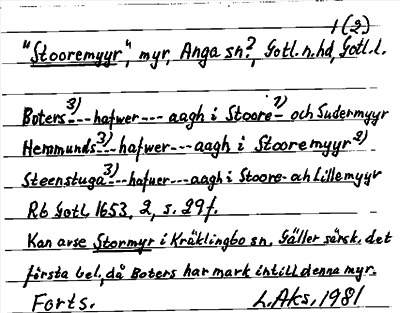 1(2)
"Stooremyyr", myr, Anga sn?, Gotl. n. hd, Gotl. l.
Boters 3)---hafwer---aagh i Stoore- 1) och Sudermyyr
Hemmunds 3)---hafwer---aagh i Stooremyyr 2)
Steenstuga 3)---hafuer---aagh i Stoore- och Lillemyyr
Rb Gotl. 1653, 2, s. 29f.
Kan avse Stormyr i Kräklingbo sn. Gäller särsk. det
första bel., då Boters har mark intill denna myr.
Forts. L. Aks. 1981